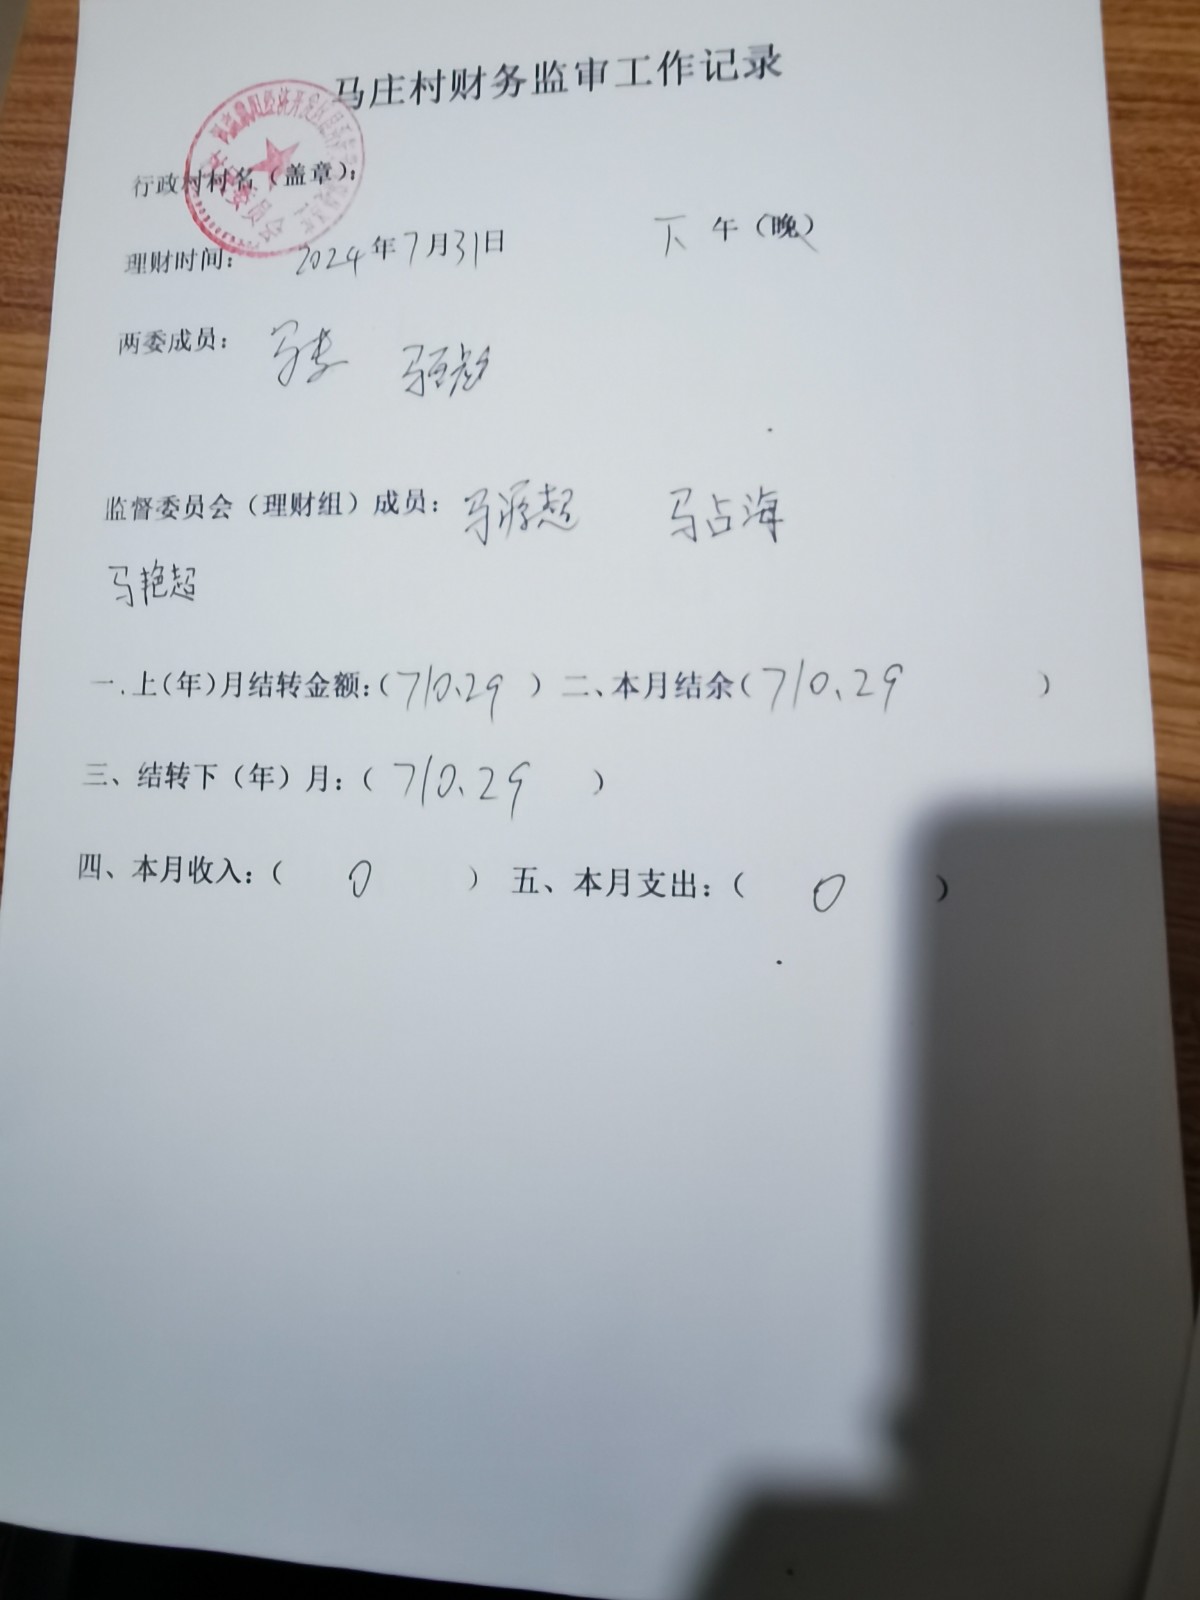 马庄村财务监审工作记录
行政村村名（盖章）：
理财时间： 2024年7月31日 下午（晚）
两委成员： 马
监督委员会（理财组）成员： 马源超 马占海
马艳超
一.上(年)月结转金额:(710.29 ) 二、本月结余(710.29 )
三、结转下（年）月:( 710.29 )
四、本月收入:( 0 ) 五、本月支出:( 0 )